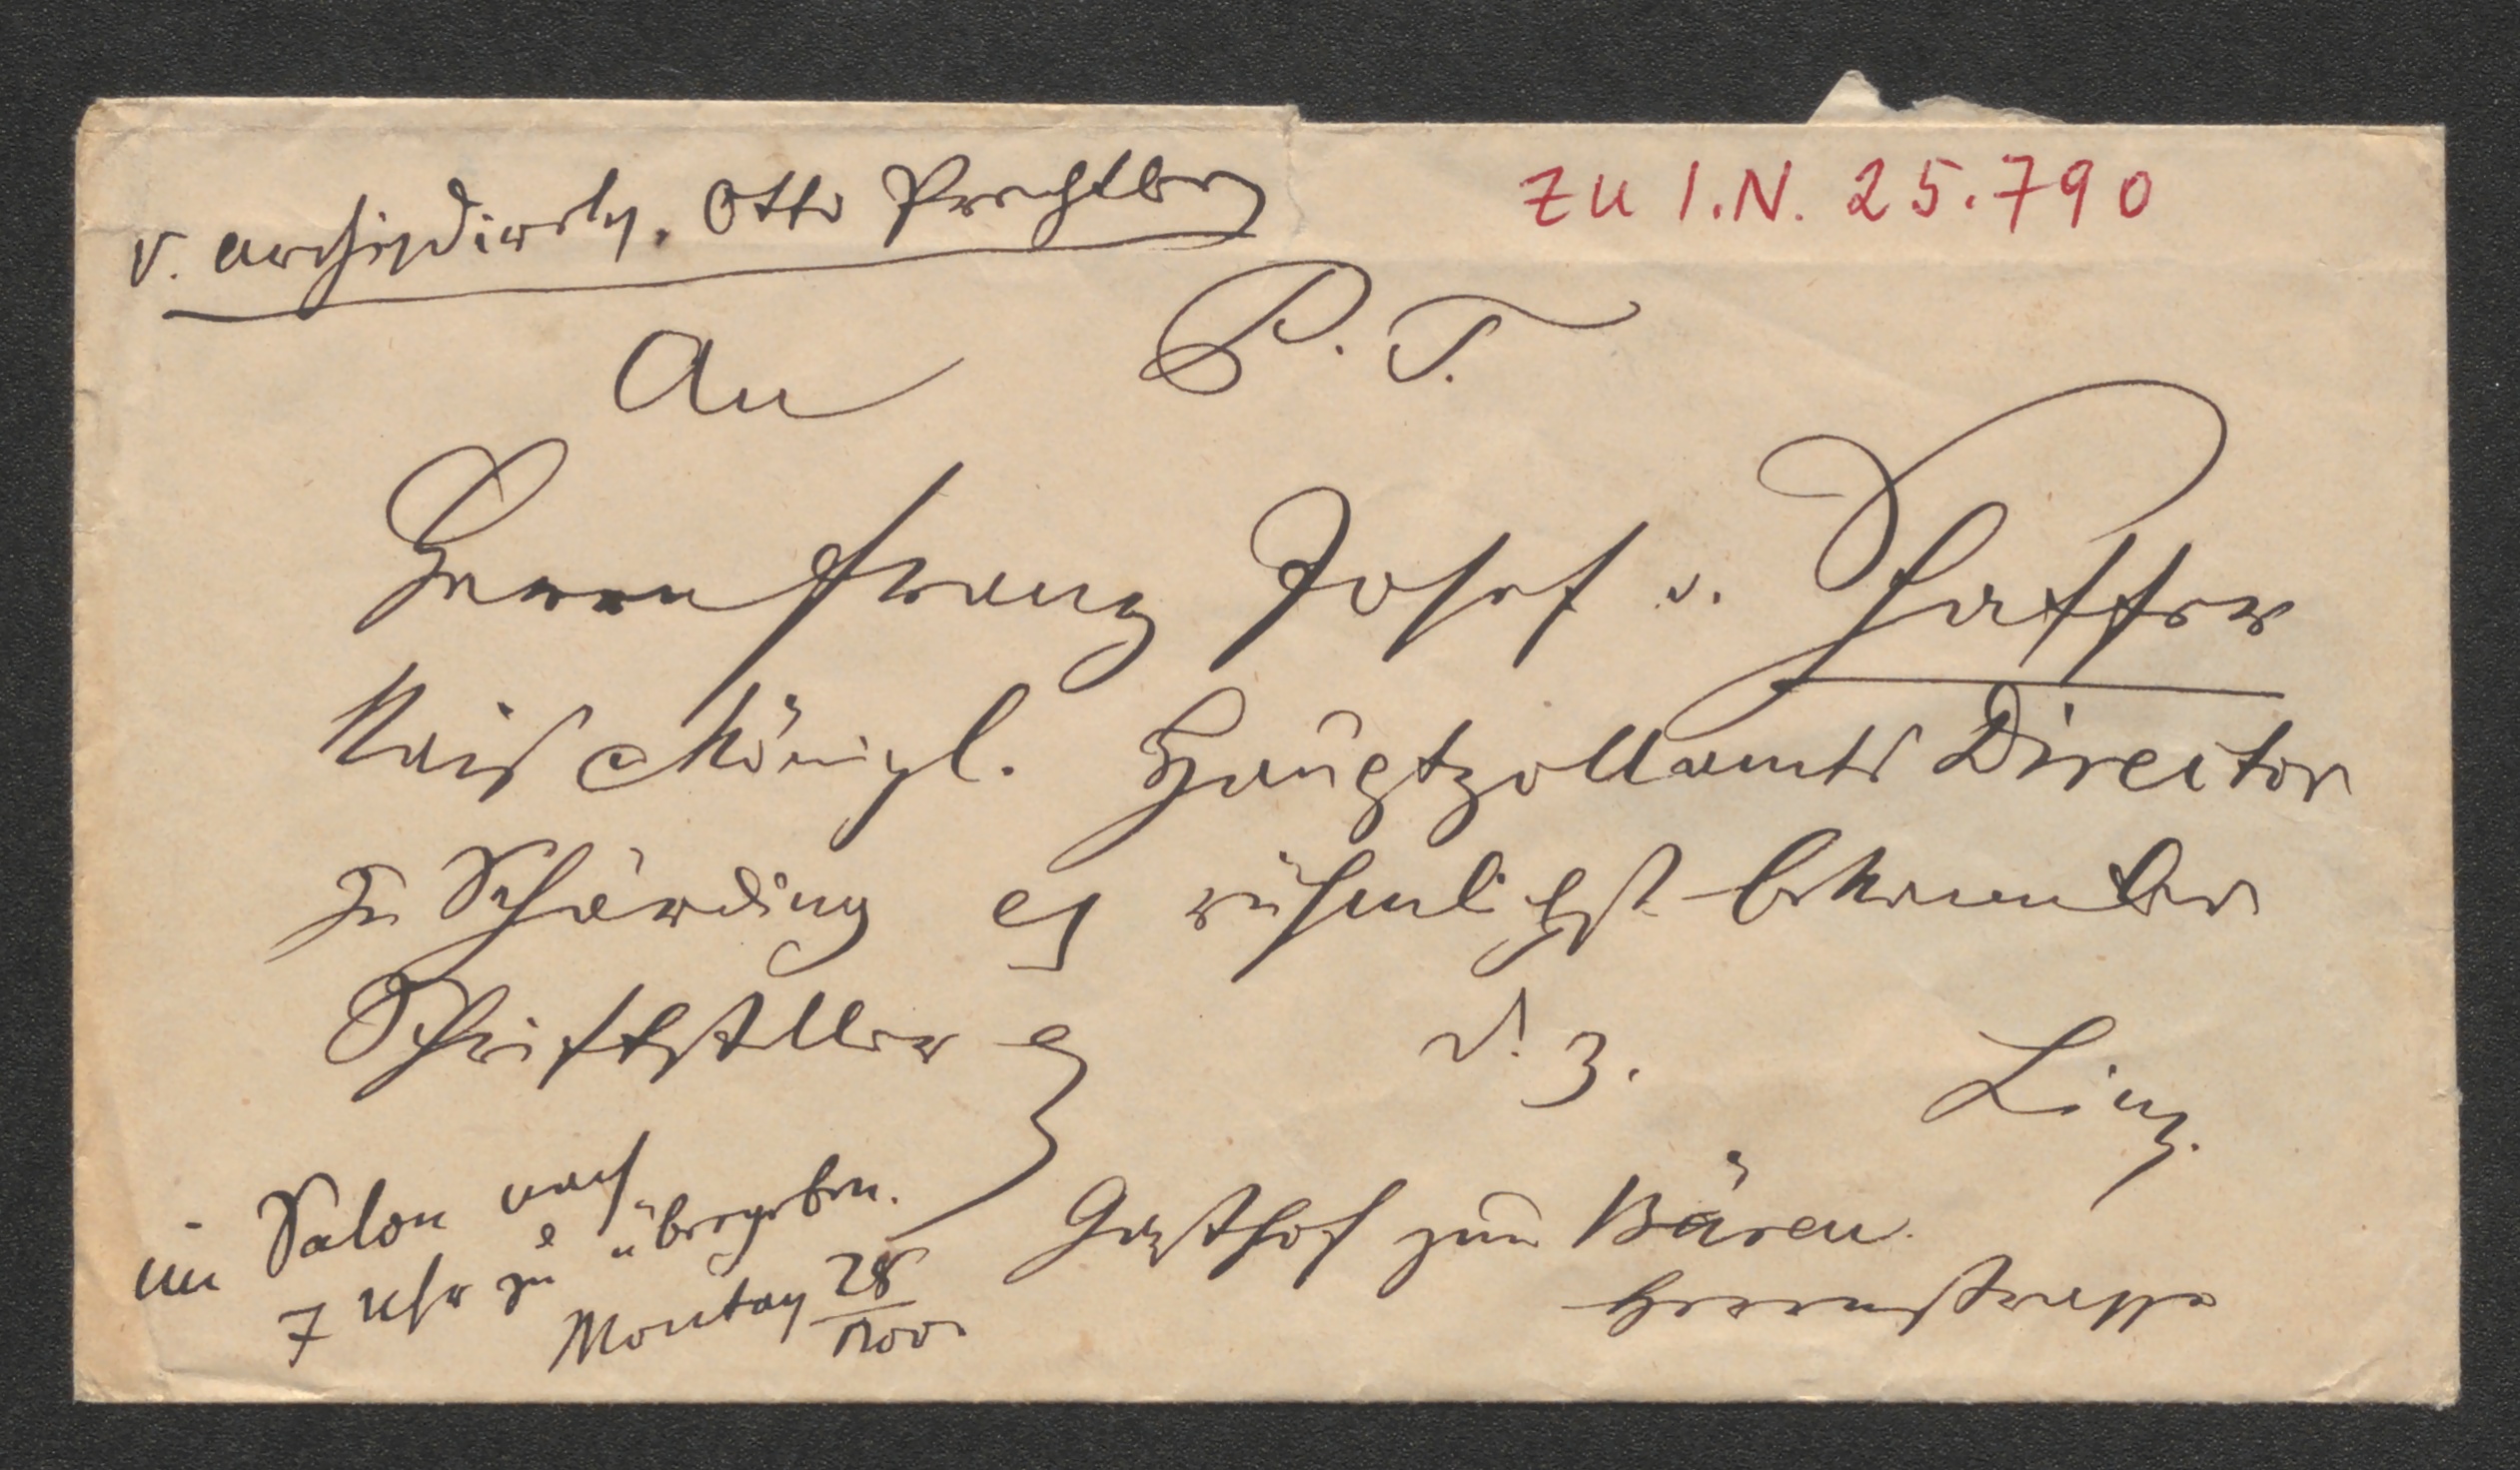 v. Archivdirekt. Otto Prechtler
ZU I.N. 25.790
An P. T.
Herrn Franz Josef v. Schaffer
Kais Königl. Hauptzollamts Director
in Schärding & rühmlichst bekannter
Schriftsteller
d. Z. Linz.
im Salon nach
7 Uhr zu übergeben.
Montag 28/Nov
Gasthof zum Bären
Herrenstrasse